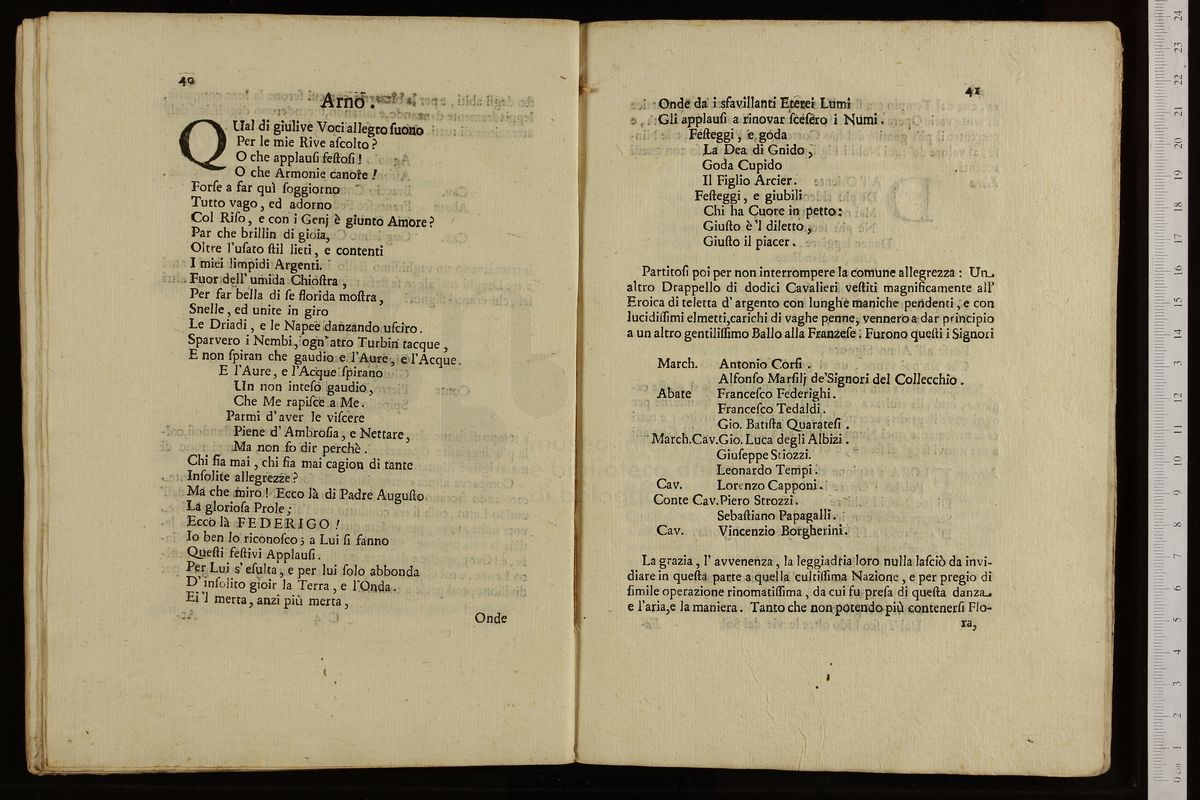 40
Arno.
QUal di giulive Voci allegro suono
Per le mie Rive aſcolto?
O che applauſi feſtoſi!
O che Armonie canore!
Forſe a far quì ſoggiorno
Tutto vago, ed adorno
Col Riſo, e con i Genj è giunto Amore?
Par che brillin di gioia,
Oltre l'uſato ſtil lieti, e contenti
I miei limpidi Argenti.
Fuor dell' umida Chioſtra,
Per far bella di ſe florida moſtra,
Snelle, ed unite in giro
Le Driadi, e le Napee danzando uſciro.
Sparvero i Nembi, ogn'atro Turbin tacque,
E non ſpiran che gaudio e l'Aure, e l'Acque.
E l'Aure, e l'Acque ſpirano
Un non inteſo gaudio,
Che Me rapiſce a Me.
Parmi d'aver le viſcere
Piene d' Ambroſia, e Nettare,
Ma non ſo dir perchè.
Chi fia mai, chi fia mai cagion di tante
Inſolite allegrezze?
Ma che miro! Ecco là di Padre Auguſto
La glorioſa Prole;
Ecco là FEDERIGO!
Io ben lo riconoſco; a Lui ſi fanno
Queſti feſtivi Applauſi.
Per Lui s'eſulta, e per lui ſolo abbonda
D'inſolito gioir la Terra, e l'Onda.
Ei 'l merta, anzi più merta,
Onde
41
Onde da i sfavillanti Eterei Lumi
Gli applauſi a rinovar ſceſero i Numi.
Feſteggi, e goda
La Dea di Gnido,
Goda Cupido
Il Figlio Arcier.
Feſteggi, e giubili
Chi ha Cuore in petto:
Giuſto è 'l diletto,
Giuſto il piacer.
Partitoſi poi per non interrompere la comune allegrezza: Un
altro Drappello di dodici Cavalieri veſtiti magnificamente all'
Eroica di teletta d'argento con lunghe maniche pendenti, e con
lucidiſſimi elmetti, carichi di vaghe penne, vennero a dar principio
a un altro gentiliſſimo Ballo alla Franzeſe. Furono queſti i Signori
March. Antonio Corſi.
Alfonſo Marſilj de'Signori del Collecchio.
Abate Franceſco Federighi.
Franceſco Tedaldi.
Gio. Batiſta Quarateſi.
March.Cav.Gio. Luca degli Albizi.
Giuſeppe Stiozzi.
Leonardo Tempi.
Cav. Lorenzo Capponi.
Conte Cav. Piero Strozzi.
Sebaſtiano Papagalli.
Cav. Vincenzio Borgherini.
La grazia, l' avvenenza, la leggiadria loro nulla laſciò da invi-
diare in queſta parte a quella cultiſſima Nazione, e per pregio di
ſimile operazione rinomatiſſima, da cui fu preſa di queſta danza
e l'aria, e la maniera. Tanto che non potendo più contenerſi Flo-
ra,